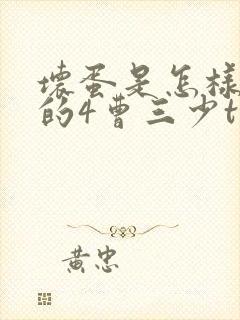 壞蛋是怎樣
的4曹三少t
黃忠